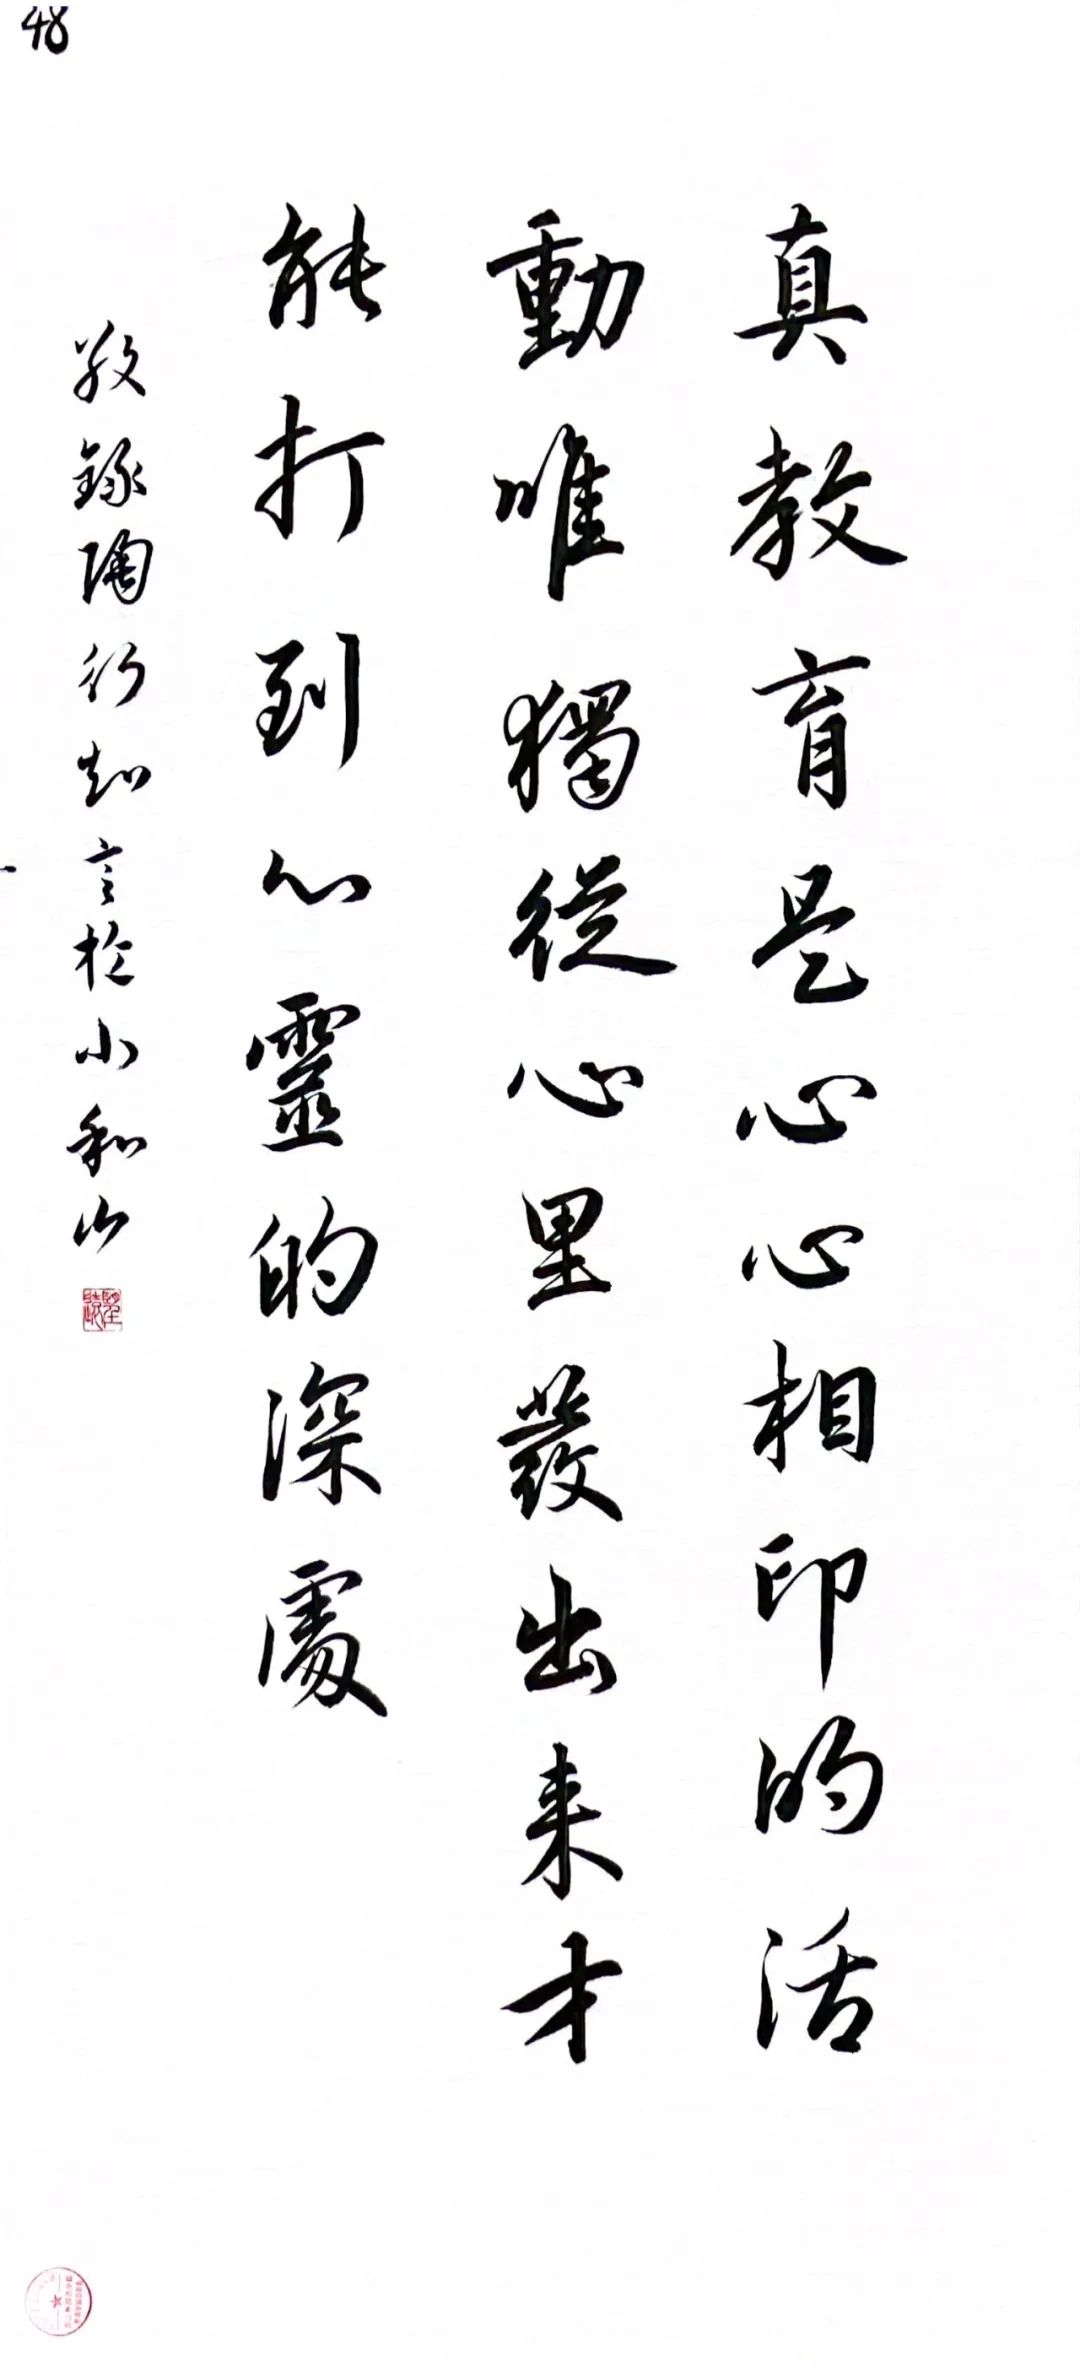 真教育是心心相印的活
動唯獨從心里發出来才
能打到心靈的深處
敬録陶行知言於小和山
48